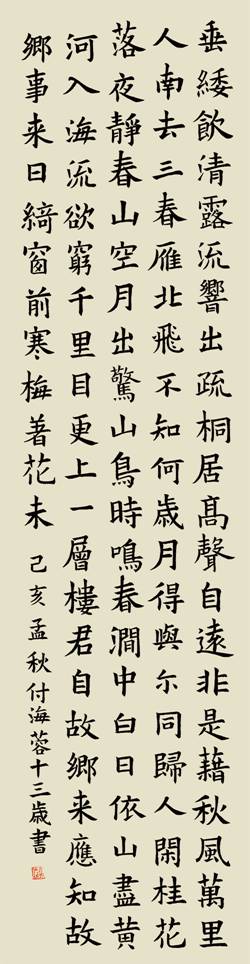 垂緌飲清露流響出疏桐居髙聲自遠非是藉秋風萬里
人南去三春雁北飛不知何歲月得與尔同歸人閑桂花
落夜靜春山空月出驚山鳥時鳴春澗中白日依山盡黄
河入海流欲窮千里目更上一層樓君自故鄉来應知故
鄉事来日綺窗前寒梅著花未 己亥孟秋付海蓉十三歲書